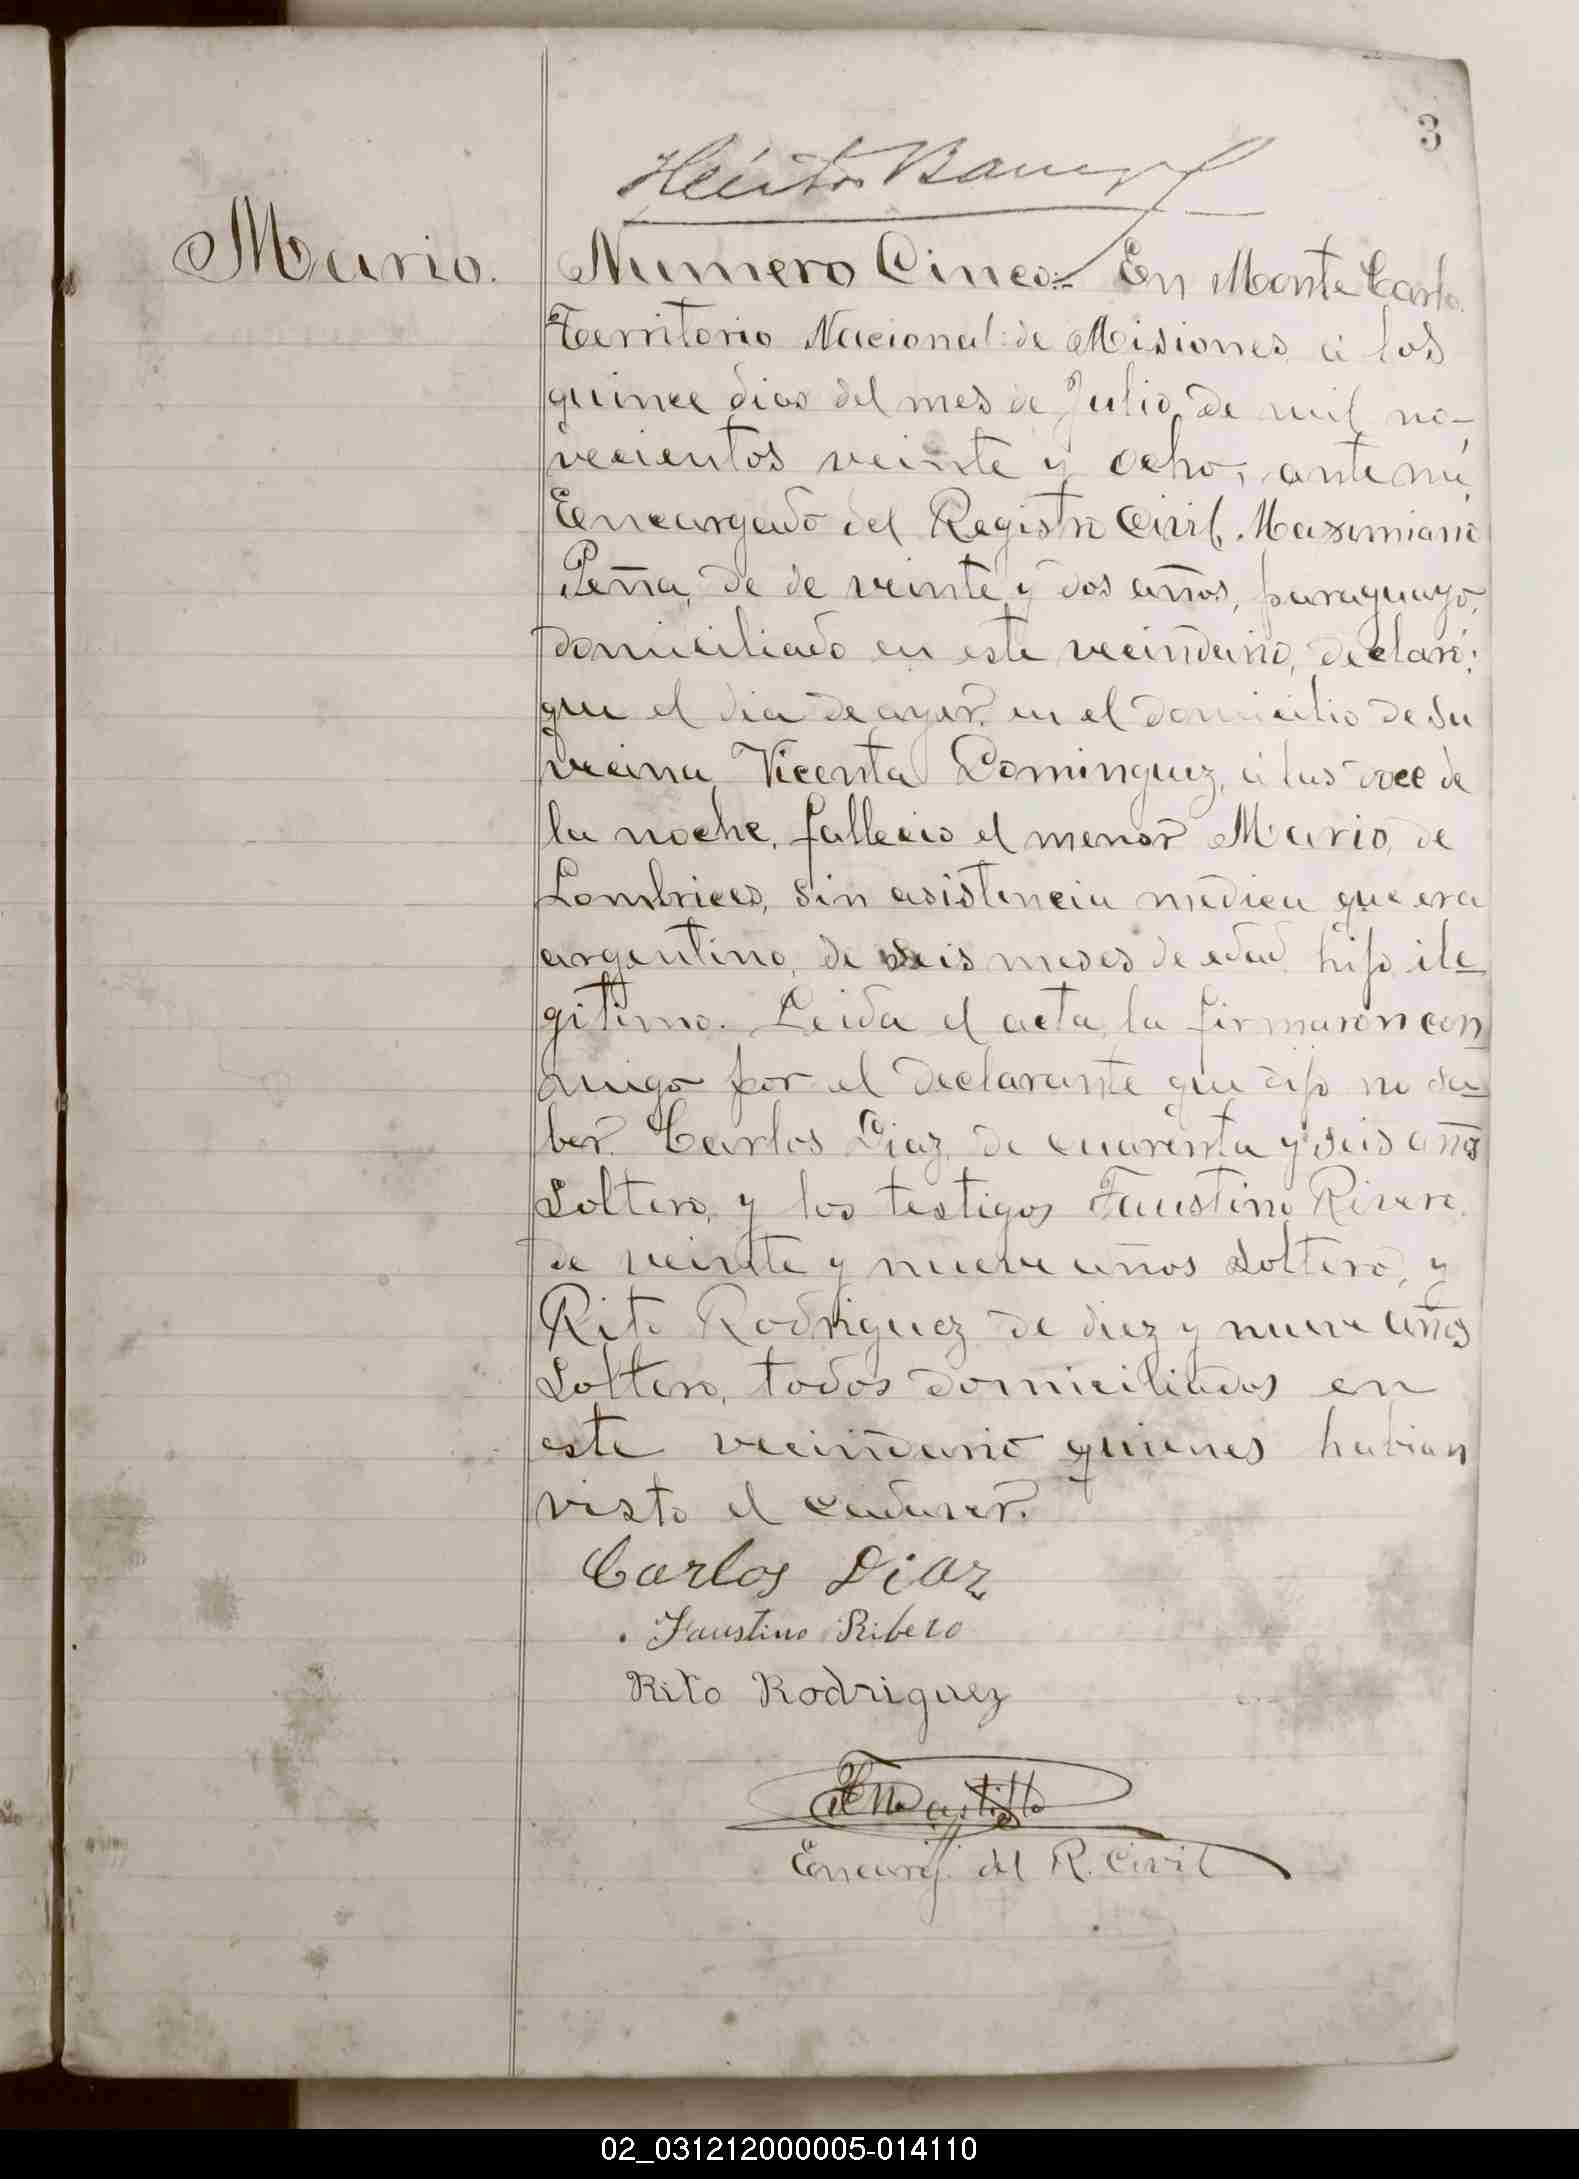 3
Mario.
Numero Cinco:- En Monte Carlo.
Territorio Nacional de Misiones á los
quince dias del mes de Julio, de mil no-
vecientos veinte y ocho, ante mí,
Encargado del Registro Civil, Maximiano
Peña, de de veinte y dos años, paraguayo,
domiciliado en este vecindario, declaró:
que el dia de ayer. en el domicilio de su
vecina Vicenta Dominguez, á las doce de
la noche, fallecio el menor Mario, de
Lombrices, sin asistencia medica que era
argentino, de seis meses de edad hijo ile
gitimo. Leida el acta la firmaron con
migo por el declarante que dijo no sa
ber. Carlos Diaz, de cuarenta y seis años
Soltero, y los testigos Faustino Rivero.
de veinte y nueve años Soltero, y
Rito Rodriguez de diez y nueve años
Soltero, todos domiciliados en
este vecindario quienes habian
visto el cadaver.
Carlos Diaz
Faustino Ribero
Rito Rodriguez
Encarg. del R. Civil
02_031212000005-014110